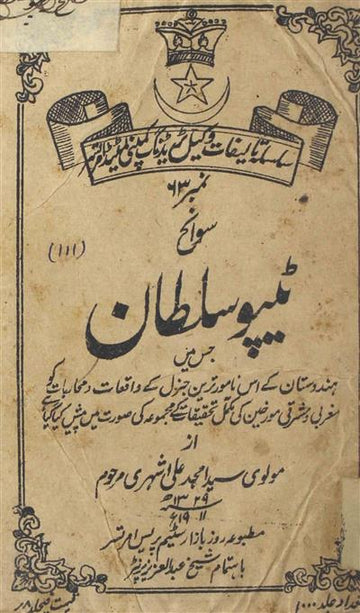 سلسلہ تالیفات وکیل ٹریڈنگ کمپنی لمیٹڈ امرتسر
نمبر ۶۳
سوانح
(۱۱۱)
ٹیپو سلطان
جس میں
ہندوستان کے اس نامور ترین جنرل کے واقعات و محاربات کو
مغربی و مشرقی مورخین کی مکمل تحقیقات کے مجموعہ کی صورت میں پیش کیا گیا ہے
از
مولوی سید امجد علی اشہری مرحوم
۱۳۲۹ھ
۱۹۱۱ء
مطبوعہ روز بازار سٹیم پریس امرتسر
باہتمام شیخ عبدالعزیز پرنٹر
تعداد جلد ۱۰۰۰